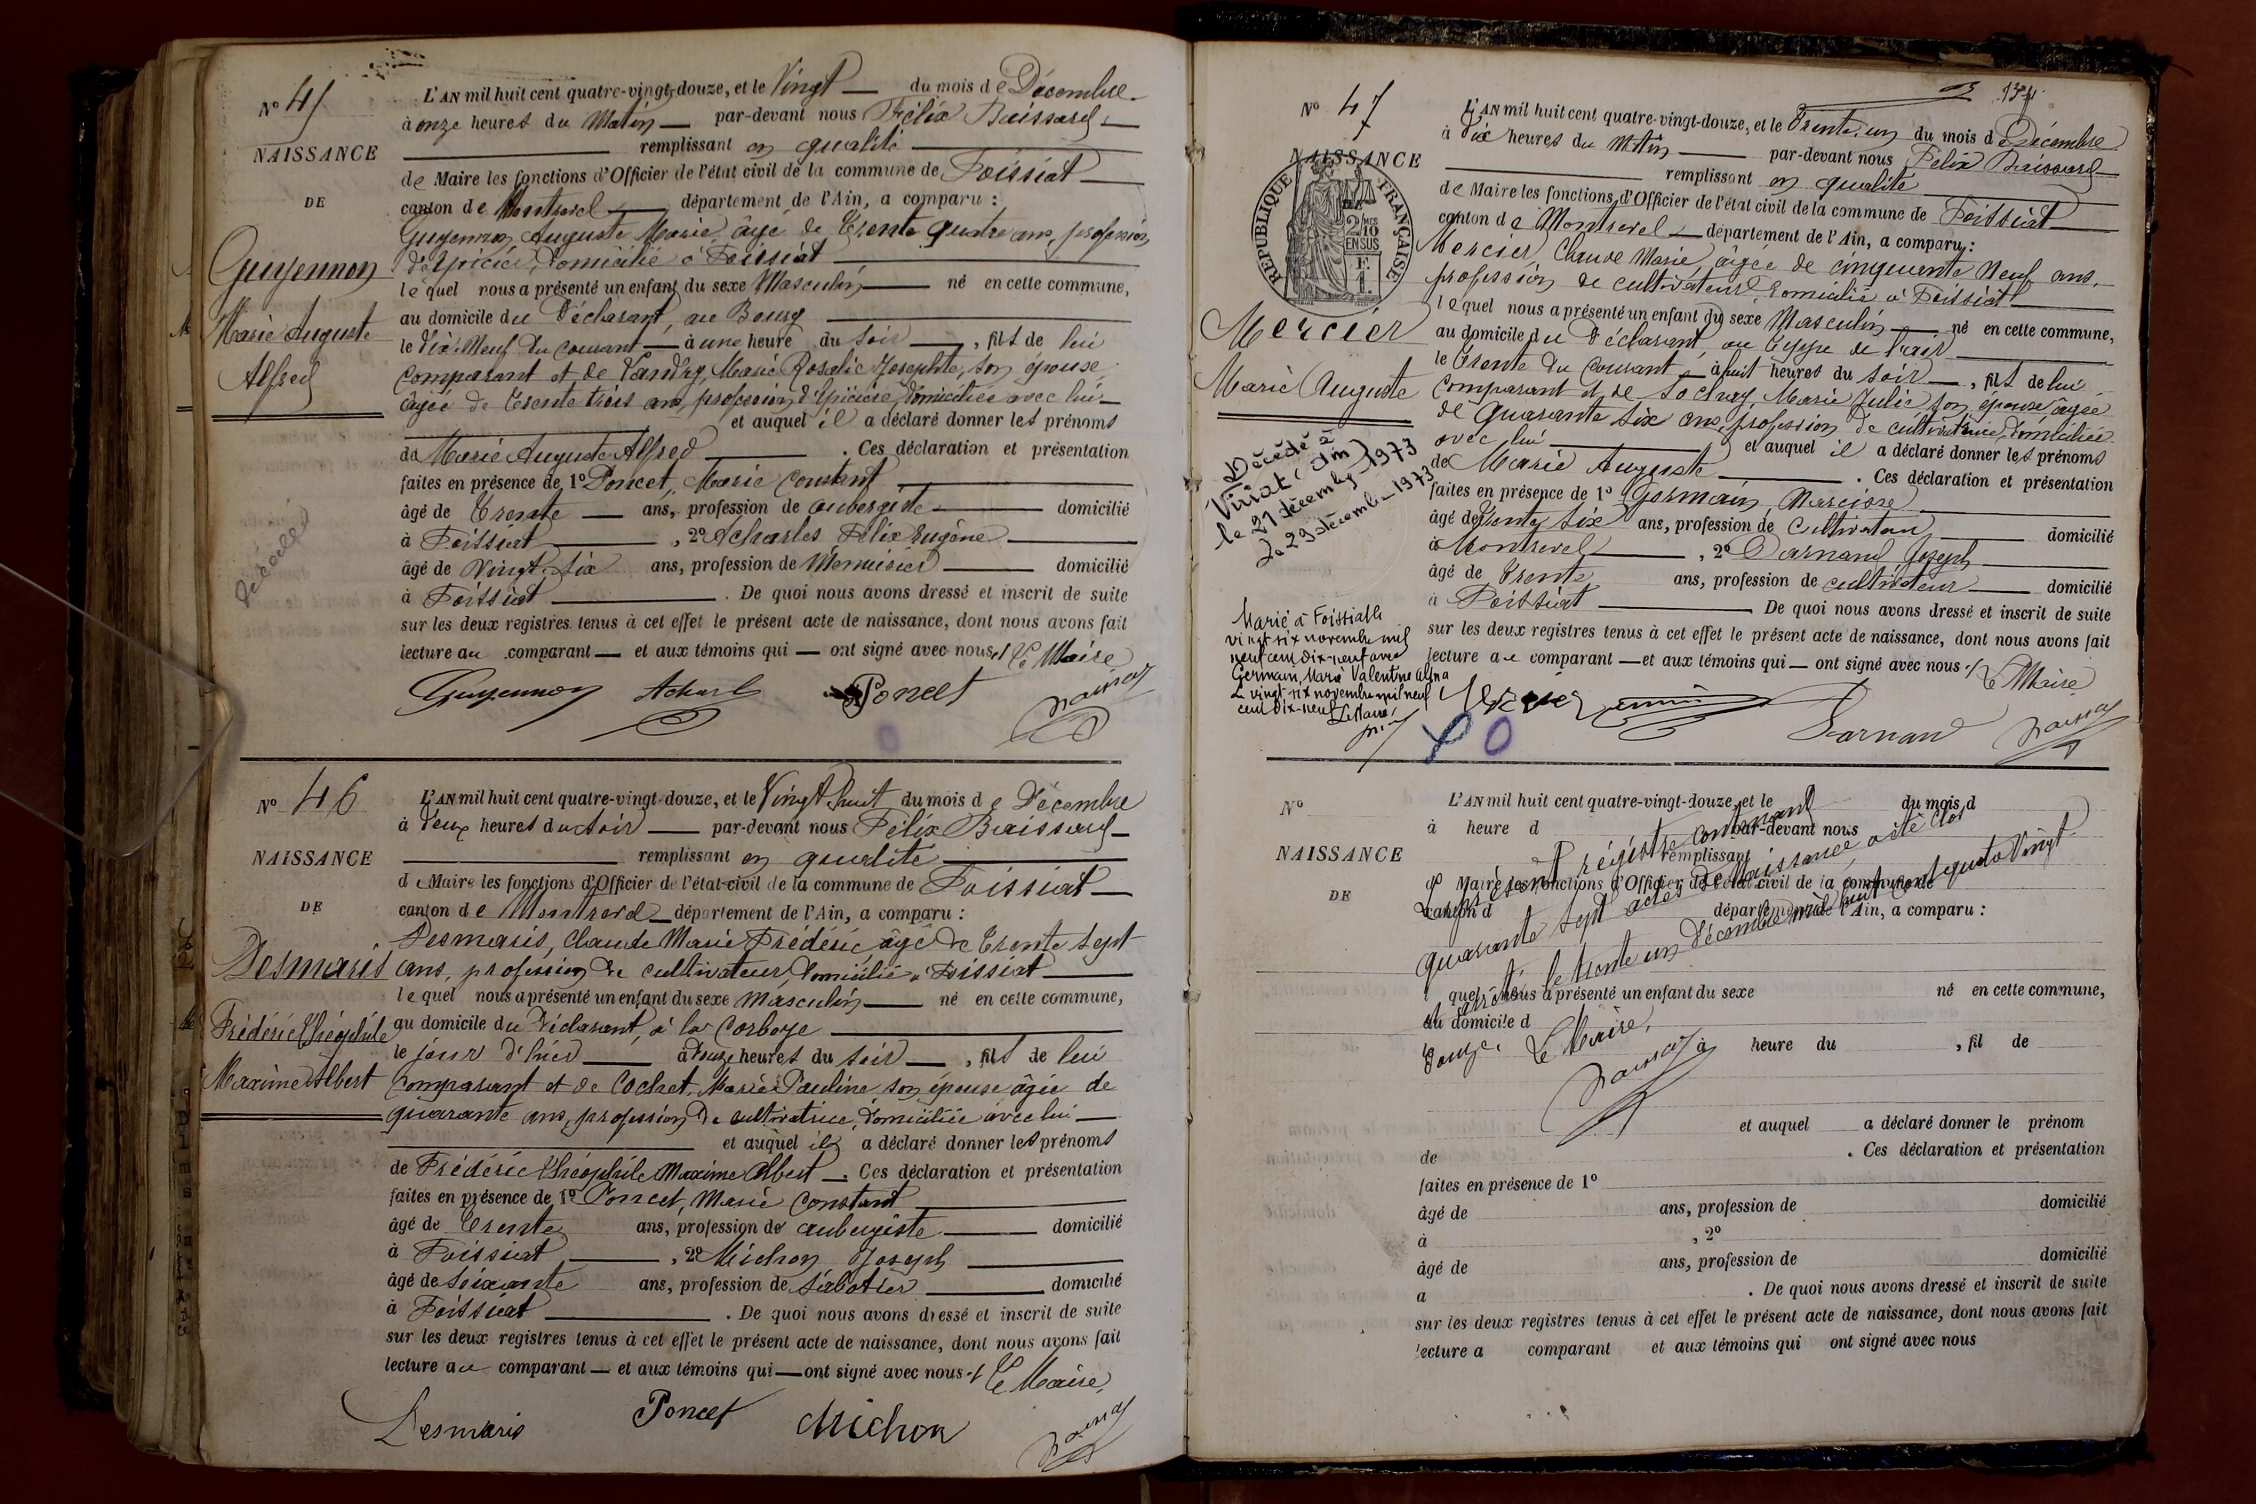 N° 45
NAISSANCE
DE
Guyennon
Marie Auguste
Alfred
décédé
L'AN mil huit cent quatre-vingt-douze, et le Vingt du mois de Décembre
à onze heures du Matin par-devant nous Félix Baissard
remplissant en qualité
de Maire les fonctions d'Officier de l'état civil de la commune de Foissiat
canton de Montrevel département de l'Ain, a comparu :
Guyennon Auguste Marie, âgé de trente quatre ans, profession
d'épicier, domicilié à Foissiat
lequel nous a présenté un enfant du sexe Masculin né en cette commune,
au domicile du Déclarant, au Bourg
le dix-Neuf du courant à une heure du soir, fils de lui
comparant et de Vandry, Marie Rosalie Josephte, son épouse
âgée de trente trois ans, profession d'épicière, domiciliée avec lui
et auquel il a déclaré donner les prénoms
de Marie Auguste Alfred. Ces déclaration et présentation
faites en présence de 1° Poncet, Marie Constant
âgé de trente ans, profession de aubergiste domicilié
à Foissiat, 2° Acharles Félix Eugène
âgé de vingt-six ans, profession de Menuisier domicilié
à Foissiat. De quoi nous avons dressé et inscrit de suite
sur les deux registres tenus à cet effet le présent acte de naissance, dont nous avons fait
lecture au comparant et aux témoins qui ont signé avec nous Le Maire
Guyennon Acharl Poncet Baissard
N° 46
NAISSANCE
DE
Desmaris
Frédéric Théophile
Maxime Albert
L'AN mil huit cent quatre-vingt-douze, et le Vingt huit du mois de Décembre
à deux heures du soir par-devant nous Félix Baissard
remplissant en qualité
de Maire les fonctions d'Officier de l'état-civil de la commune de Foissiat
canton de Montrevel département de l'Ain, a comparu :
Desmaris, Claude Marie Frédéric, âgé de trente sept
ans, profession de cultivateur, domicilié à Foissiat
lequel nous a présenté un enfant du sexe Masculin né en cette commune,
au domicile du Déclarant, à la Corbaye
le jour d'hier à onze heures du soir, fils de lui
comparant et de Cochet, Marie Pauline son épouse âgée de
quarante ans, profession de cultivatrice, domiciliée avec lui
et auquel il a déclaré donner les prénoms
de Frédéric Théophile Maxime Albert. Ces déclaration et présentation
faites en présence de 1° Poncet, Marie Constant
âgé de trente ans, profession de aubergiste domicilié
à Foissiat, 2° Michon Joseph
âgé de soixante ans, profession de sabotier domicilié
à Foissiat. De quoi nous avons dressé et inscrit de suite
sur les deux registres tenus à cet effet le présent acte de naissance, dont nous avons fait
lecture au comparant et aux témoins qui ont signé avec nous Le Maire,
Desmaris Poncet Michon Baissard
174
N° 47
NAISSANCE
RÉPUBLIQUE FRANÇAISE
2/10 MES
EN SUS
Mercier
Marie Auguste
Décédé à
Viriat (Ain)
le 21 décembre 1973
Le 29 décembre 1973
Marié à Foissiat le
vingt six novembre mil
neuf cent dix-neuf avec
Germain, Marie Valentine Alina
Le vingt-six novembre mil neuf
cent dix-neuf
Le Maire,
L'AN mil huit cent quatre-vingt-douze, et le trente un du mois de Décembre
à dix heures du Matin par-devant nous Félix Baissard
remplissant en qualité
de Maire les fonctions d'Officier de l'état civil de la commune de Foissiat
canton de Montrevel département de l'Ain, a comparu :
Mercier, Claude Marie, âgée de cinquante Neuf ans,
profession de cultivateur, domicilié à Foissiat
lequel nous a présenté un enfant du sexe Masculin né en cette commune,
au domicile du Déclarant,
le trente du courant à huit heures du soir, fils de lui
comparant et de Sochay Marie Julie son épouse âgée
de quarante six ans, profession de cultivatrice, domiciliée
avec lui et auquel il a déclaré donner les prénoms
de Marie Auguste. Ces déclaration et présentation
faites en présence de 1° Germain, Narcisse
âgé de trente six ans, profession de Cultivateur domicilié
à Montrevel, 2° Darnand Joseph
âgé de trente ans, profession de cultivateur domicilié
à Foissiat De quoi nous avons dressé et inscrit de suite
sur les deux registres tenus à cet effet le présent acte de naissance, dont nous avons fait
lecture au comparant et aux témoins qui ont signé avec nous Le Maire
Mercier Germain Darnand Baissard
N°
NAISSANCE
DE
L'AN mil huit cent quatre-vingt-douze, et le du mois d
à heure d par-devant nous
remplissant
d Maire les fonctions d'Officier de l'état civil de la commune de
canton d département de l'Ain, a comparu :
quel nous a présenté un enfant du sexe né en cette commune,
au domicile d
le à heure du , fil de
et auquel a déclaré donner le prénom
de . Ces déclaration et présentation
faites en présence de 1°
âgé de ans, profession de domicilié
à , 2°
âgé de ans, profession de domicilié
à . De quoi nous avons dressé et inscrit de suite
sur les deux registres tenus à cet effet le présent acte de naissance, dont nous avons fait
lecture a comparant et aux témoins qui ont signé avec nous
Le présent régistre contenant
quarante sept actes de Naissance, a été clos
et arrêté le trente un décembre mil huit cent quatre Vingt
douze. Le Maire,
Baissard